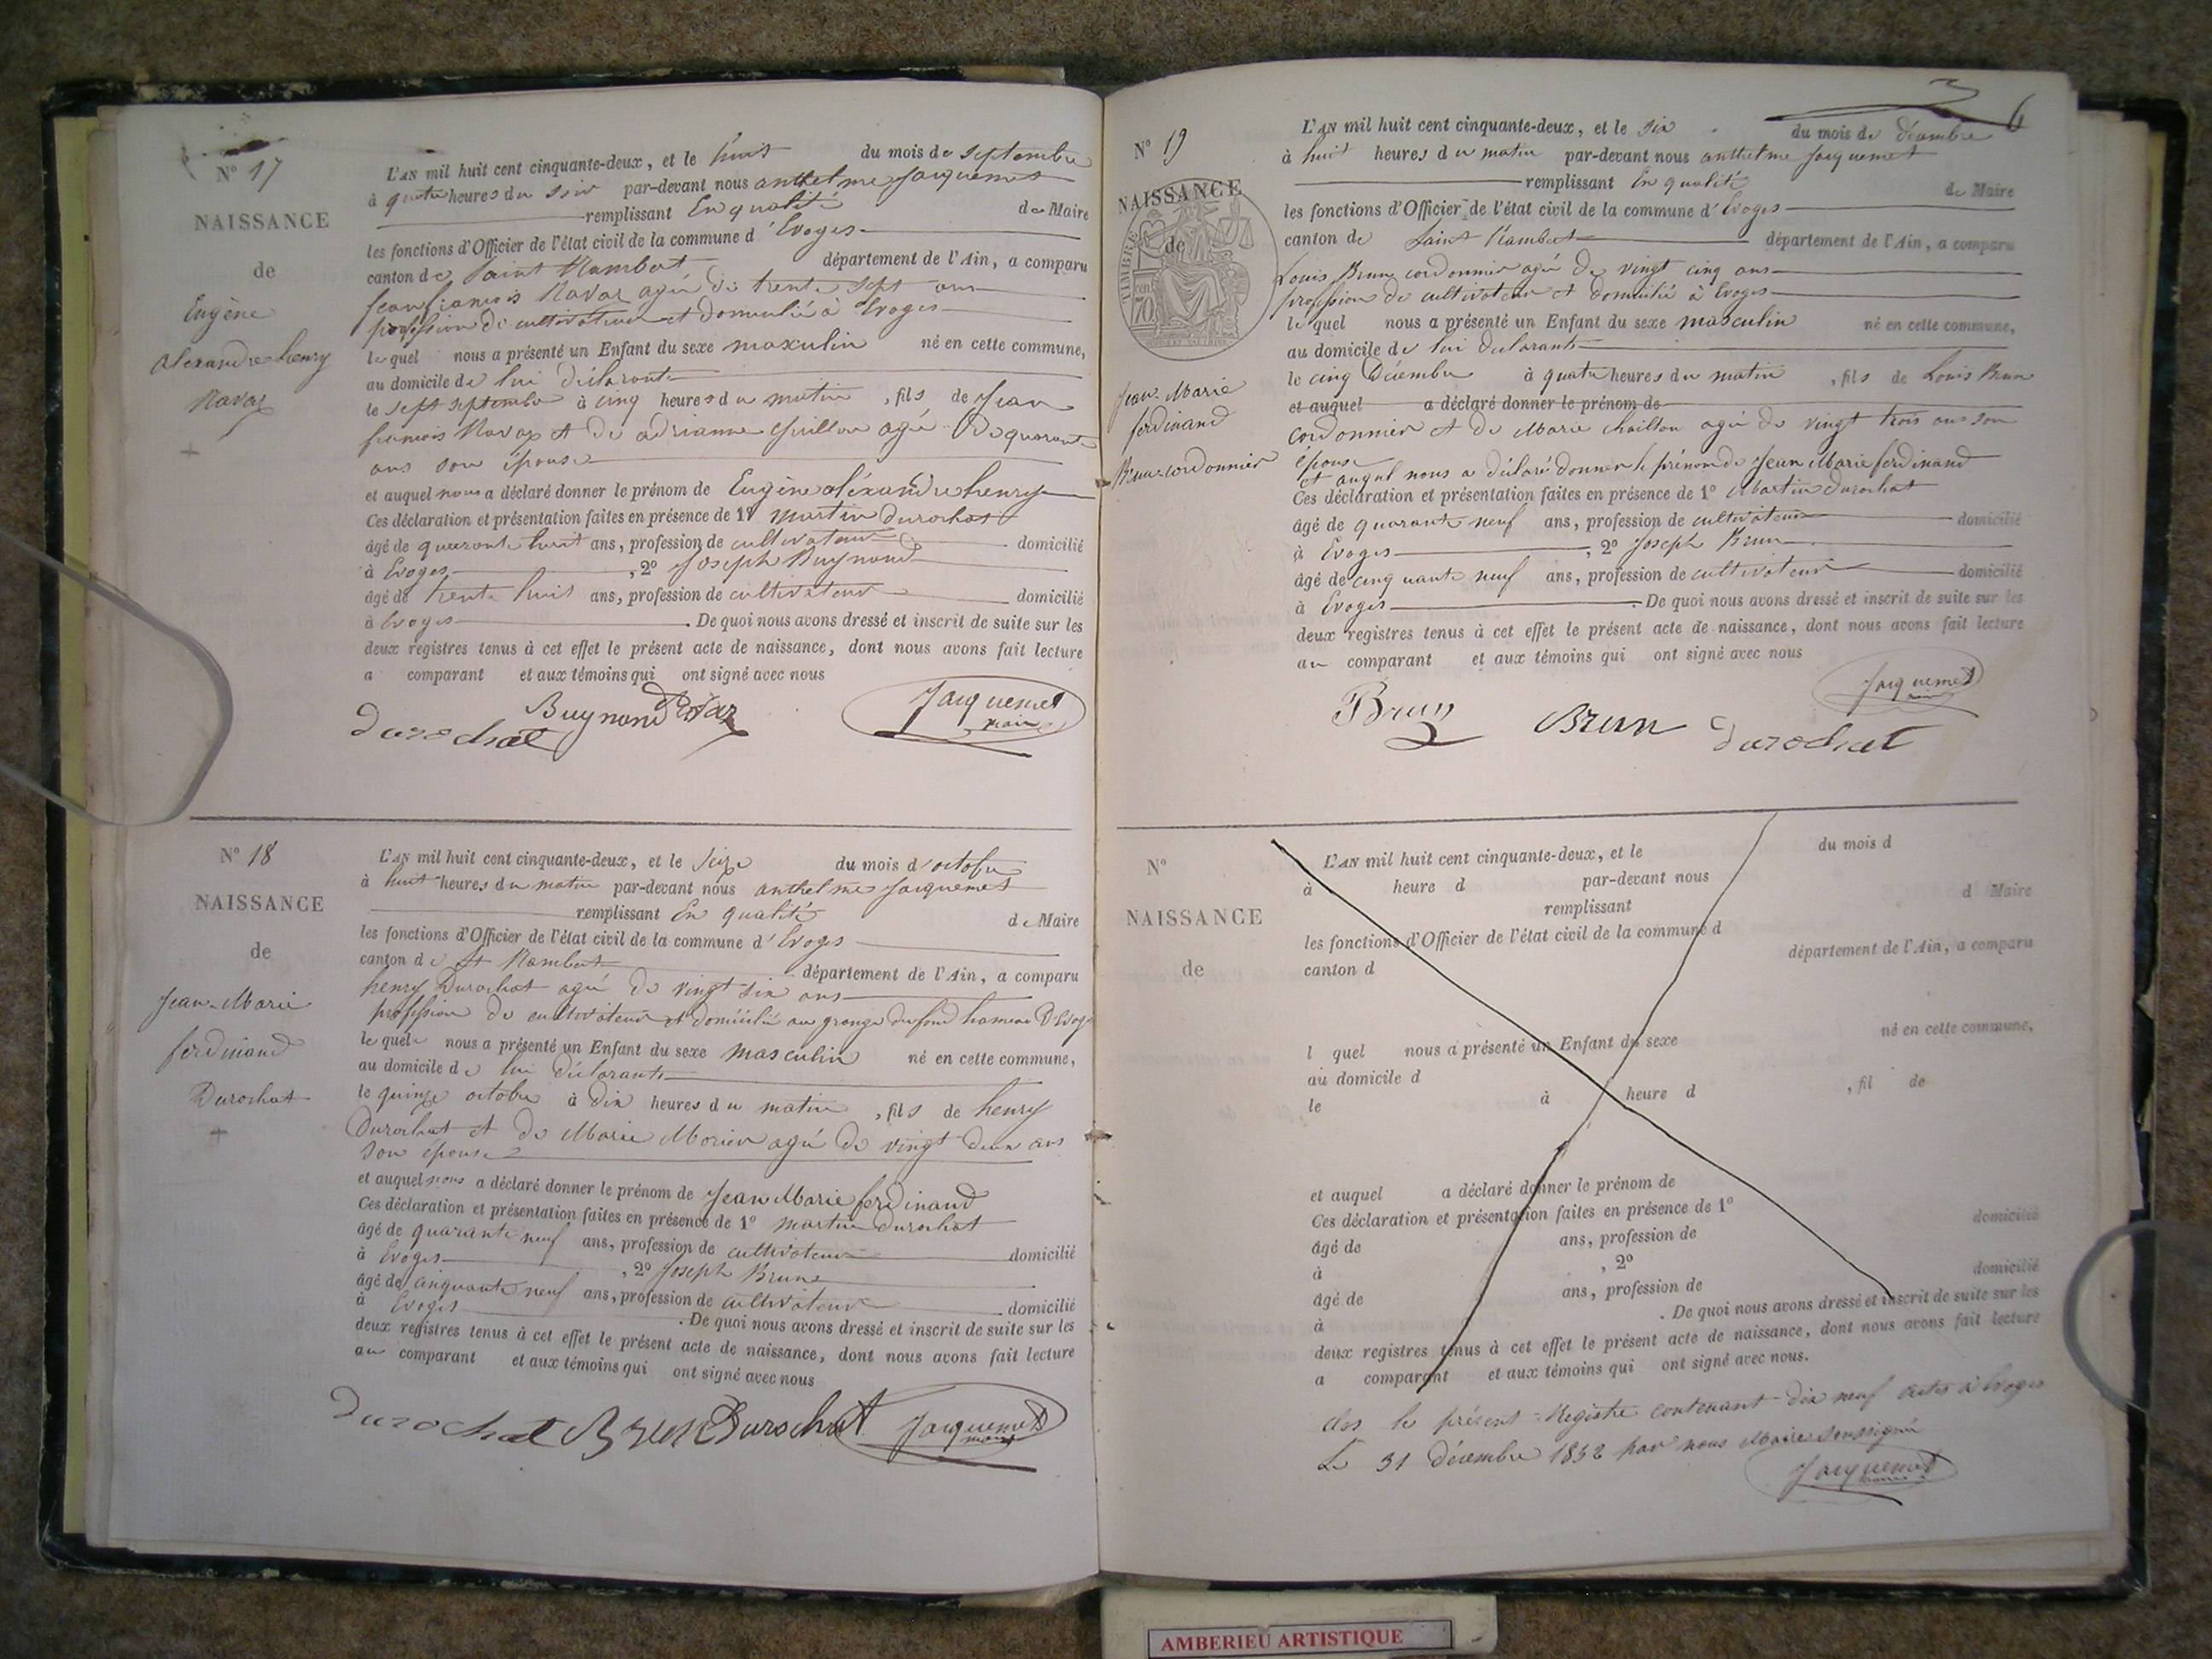 N° 17
NAISSANCE
de
Eugène
alexandre henry
Ravaz
L'AN mil huit cent cinquante-deux, et le huit du mois de septembre
à quatre heures du soir par-devant nous anthelme Jacquemet
remplissant En qualité de Maire
les fonctions d'Officier de l'état civil de la commune d'Evoges
canton de Saint Rambert département de l'Ain, a comparu
jean francois Ravaz agé de trente sept ans
profession de cultivateur et domicilié à Evoges
lequel nous a présenté un Enfant du sexe masculin né en cette commune,
au domicile de lui déclarant
le sept septembre à cinq heures du matin, fils de Jean
francois Ravaz et de adrianne Guillon agé de quarante
ans son épouse
et auquel nous a déclaré donner le prénom de Eugène aléxandre henry
Ces déclaration et présentation faites en présence de 1° martin durochat
âgé de quaronte huit ans, profession de cultivateur domicilié
à Evoges, 2° Joseph Buynand
âgé de trente huit ans, profession de cultivateur domicilié
à Evoges. De quoi nous avons dressé et inscrit de suite sur les
deux registres tenus à cet effet le présent acte de naissance, dont nous avons fait lecture
a comparant et aux témoins qui ont signé avec nous
durochat Buynand Ravaz Jacquemet
maire
N° 18
NAISSANCE
de
Jean-Marie
ferdinand
Durochat
L'AN mil huit cent cinquante-deux, et le seize du mois d'octobre
à huit heures du matin par-devant nous anthelme Jacquemet
remplissant En qualité de Maire
les fonctions d'Officier de l'état civil de la commune d'Evoges
canton de St Rambert département de l'Ain, a comparu
henry Durochat agé de vingt six ans
profession de cultivateur et domicilié au grange du fond hameau D'Evoges
lequel nous a présenté un Enfant du sexe masculin né en cette commune,
au domicile de lui déclarant
le quinze octobre à dix heures du matin, fils de henry
Durochat et de Marie agé de vingt deux ans
son épouse
et auquel nous a déclaré donner le prénom de Jean Marie ferdinand
Ces déclaration et présentation faites en présence de 1° martin durochat
âgé de quarante neuf ans, profession de cultivateur domicilié
à Evoges, 2° Joseph Brun
âgé de cinquante neuf ans, profession de cultivateur domicilié
à Evoges. De quoi nous avons dressé et inscrit de suite sur les
deux registres tenus à cet effet le présent acte de naissance, dont nous avons fait lecture
au comparant et aux témoins qui ont signé avec nous
durochat Brun Durochat Jacquemet
maire
3 6
N° 19
NAISSANCE
de
TIMBRE
70
Jean-Marie
ferdinand
Brun cordonnier
L'AN mil huit cent cinquante-deux, et le six du mois de décembre
à huit heures du matin par-devant nous anthelme Jacquemet
remplissant En qualité de Maire
les fonctions d'Officier de l'état civil de la commune d'Evoges
canton de Saint Rambert département de l'Ain, a comparu
Louis Brun cordonnier agé de vingt cinq ans
profession de cultivateur et domicilié à Evoges
lequel nous a présenté un Enfant du sexe masculin né en cette commune,
au domicile de lui déclarant
le cinq Décembre à quatre heures du matin, fils de Louis Brun
et auquel a déclaré donner le prénom de
cordonnier et de Marie chaillon agé de vingt trois ans son
épouse
et auquel nous a déclaré donner le prénom de Jean Marie ferdinand
Ces déclaration et présentation faites en présence de 1° Martin durochat
âgé de quarante neuf ans, profession de cultivateur domicilié
à Evoges, 2° Joseph Brun
âgé de cinquante neuf ans, profession de cultivateur domicilié
à Evoges. De quoi nous avons dressé et inscrit de suite sur les
deux registres tenus à cet effet le présent acte de naissance, dont nous avons fait lecture
au comparant et aux témoins qui ont signé avec nous
Brun Brun durochat Jacquemet
maire
N°
NAISSANCE
de
L'AN mil huit cent cinquante-deux, et le du mois d
à heure d par-devant nous
remplissant d Maire
les fonctions d'Officier de l'état civil de la commune d
canton d département de l'Ain, a comparu
l quel nous a présenté un Enfant du sexe né en cette commune,
au domicile d
le à heure d , fil de
et auquel a déclaré donner le prénom de
Ces déclaration et présentation faites en présence de 1°
âgé de ans, profession de domicilié
à , 2°
âgé de ans, profession de domicilié
à . De quoi nous avons dressé et inscrit de suite sur les
deux registres tenus à cet effet le présent acte de naissance, dont nous avons fait lecture
a comparant et aux témoins qui ont signé avec nous.
clos le présent Registre contenant dix neuf actes à Evoges
Le 31 décembre 1852 par nous Maire Soussigné
Jacquemet
maire
AMBERIEU ARTISTIQUE